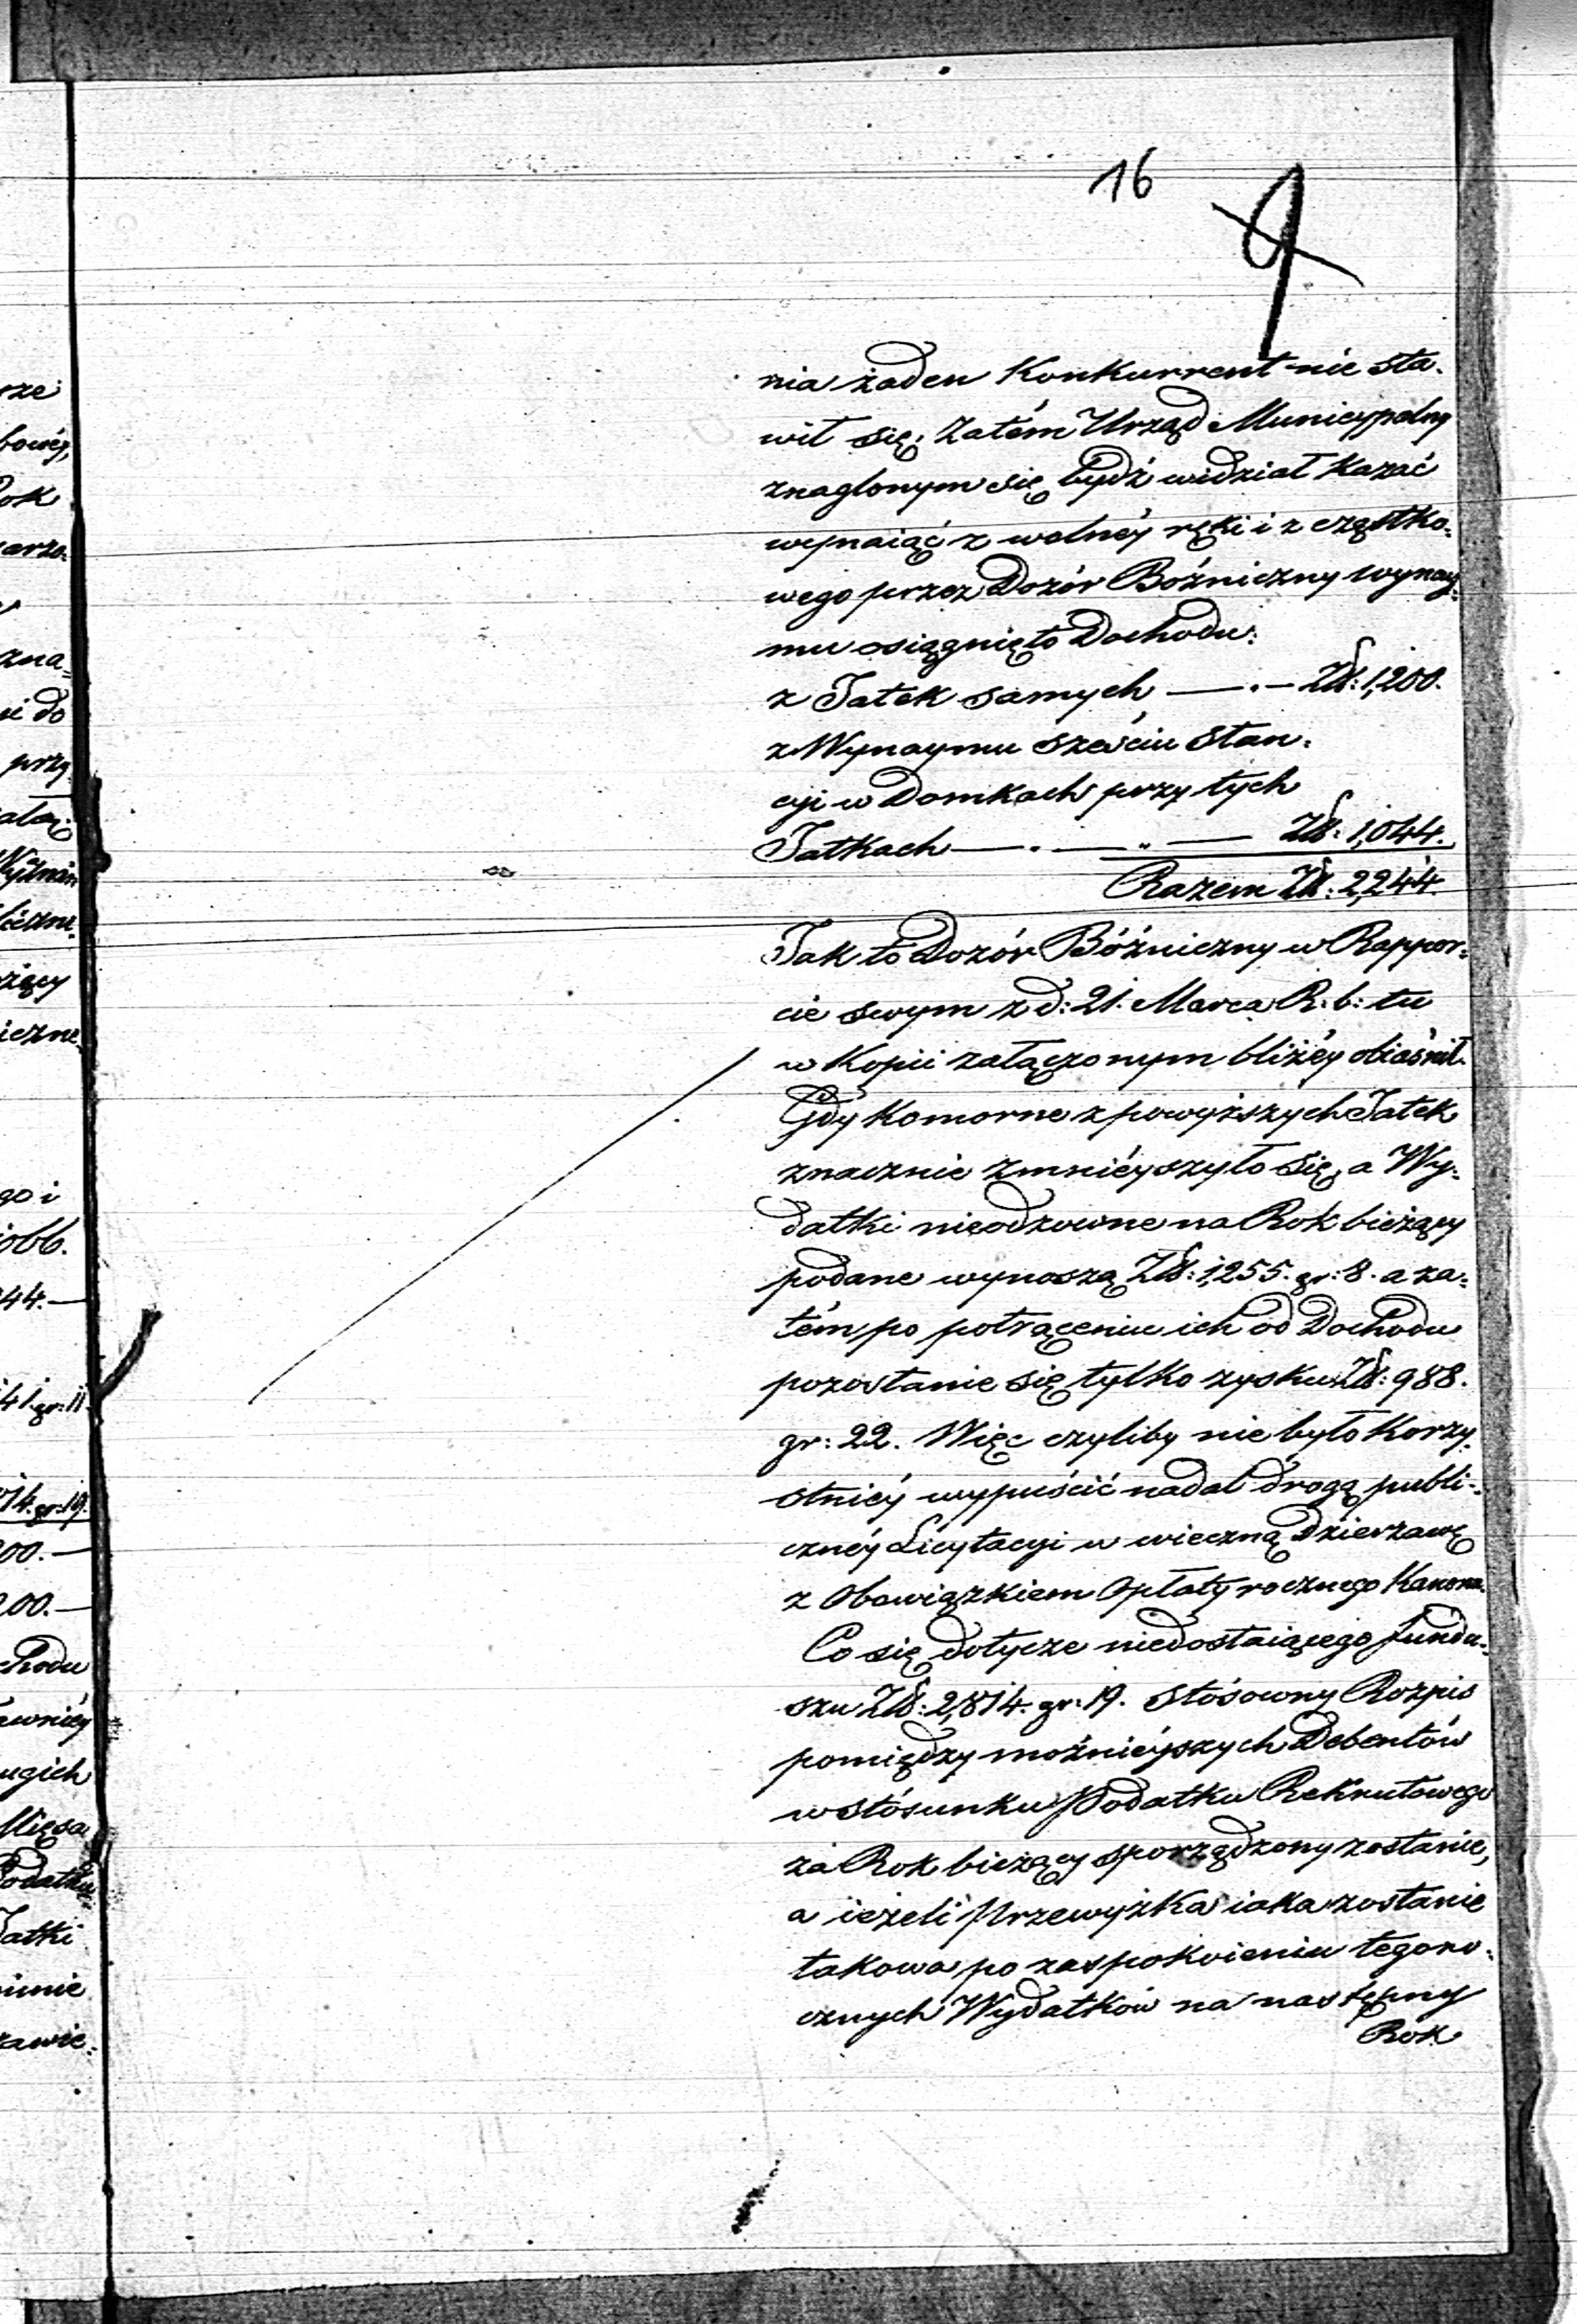 16
9
nia żaden Konkurrent nie sta-
wił się; Zatém Urząd Municypalny
znaglonym się bydź widział kazać
wynaiąć z wolnéy ręki i z cząstko-
wego przez Dozór Bóżniczny wynay-
mu osiągnięto Dochodu:
z Jatek samych —.— Zł: 1,200.
z Wynaymu sześciu Stan-
cyi w Domkach przy tych
Jatkach —.—..— Zł: 1,044.
Razem Zł: 2,244.
Jak to Dozór Bóżniczny w Rappor-
cie swym z d: 21. Marca R: b: tu
w Kopii załączonym bliżéy obiaśnił.
Gdy Komorne z powyższych Jatek
znacznie zmniéyszyło się, a Wy-
datki nieodzowne na Rok bieżący
podane wynoszą Zł: 1,255. gr: 8. a za-
tém po potrąceniu ich od Dochodu
pozostanie się tylko zysku Zł: 988.
gr: 22. Więc czyliby nie było Korzy-
stniéy wypuścić nadal drogą publi-
cznéy Licytacyi w wieczną Dzierzawę
z Obowiązkiem Opłaty rocznego Kanonu.
Co się dotycze niedostaiącego fundu-
szu Zł: 2,814. gr: 19. Stósowny Rozpis
pomiędzy możniéyszych Debentów
w stósunku Podatku Rekrutowego
za Rok bieżący sporządzony zostanie,
a ieżeli Przewyżka iaka zostanie
takowa po zaspokoieniu tegoro-
cznych Wydatków na następny
Rok